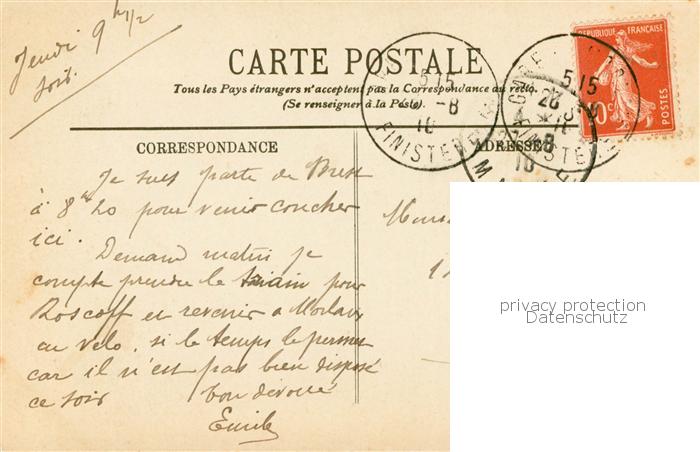 Jeudi 9 h 1/2
soir.
CARTE POSTALE
Tous les Pays étrangers n'acceptent pas la Correspondance au recto.
(Se renseigner à la Poste).
REPUBLIQUE FRANÇAISE
10c
POSTES
5 15
-8
10
FINISTERE
5 15
20
8
10
CORRESPONDANCE
ADRESSE
Je suis parte de Brest
à 8h20 pour venir coucher
ici.
Demand matin je
compte prendre le train pour
Roscoff et revenir a Morlaix
au velo, si le temps le permet
car il n'est pas bien disposé
ce soir
bon dévoué
Emile
privacy protection
Datenschutz